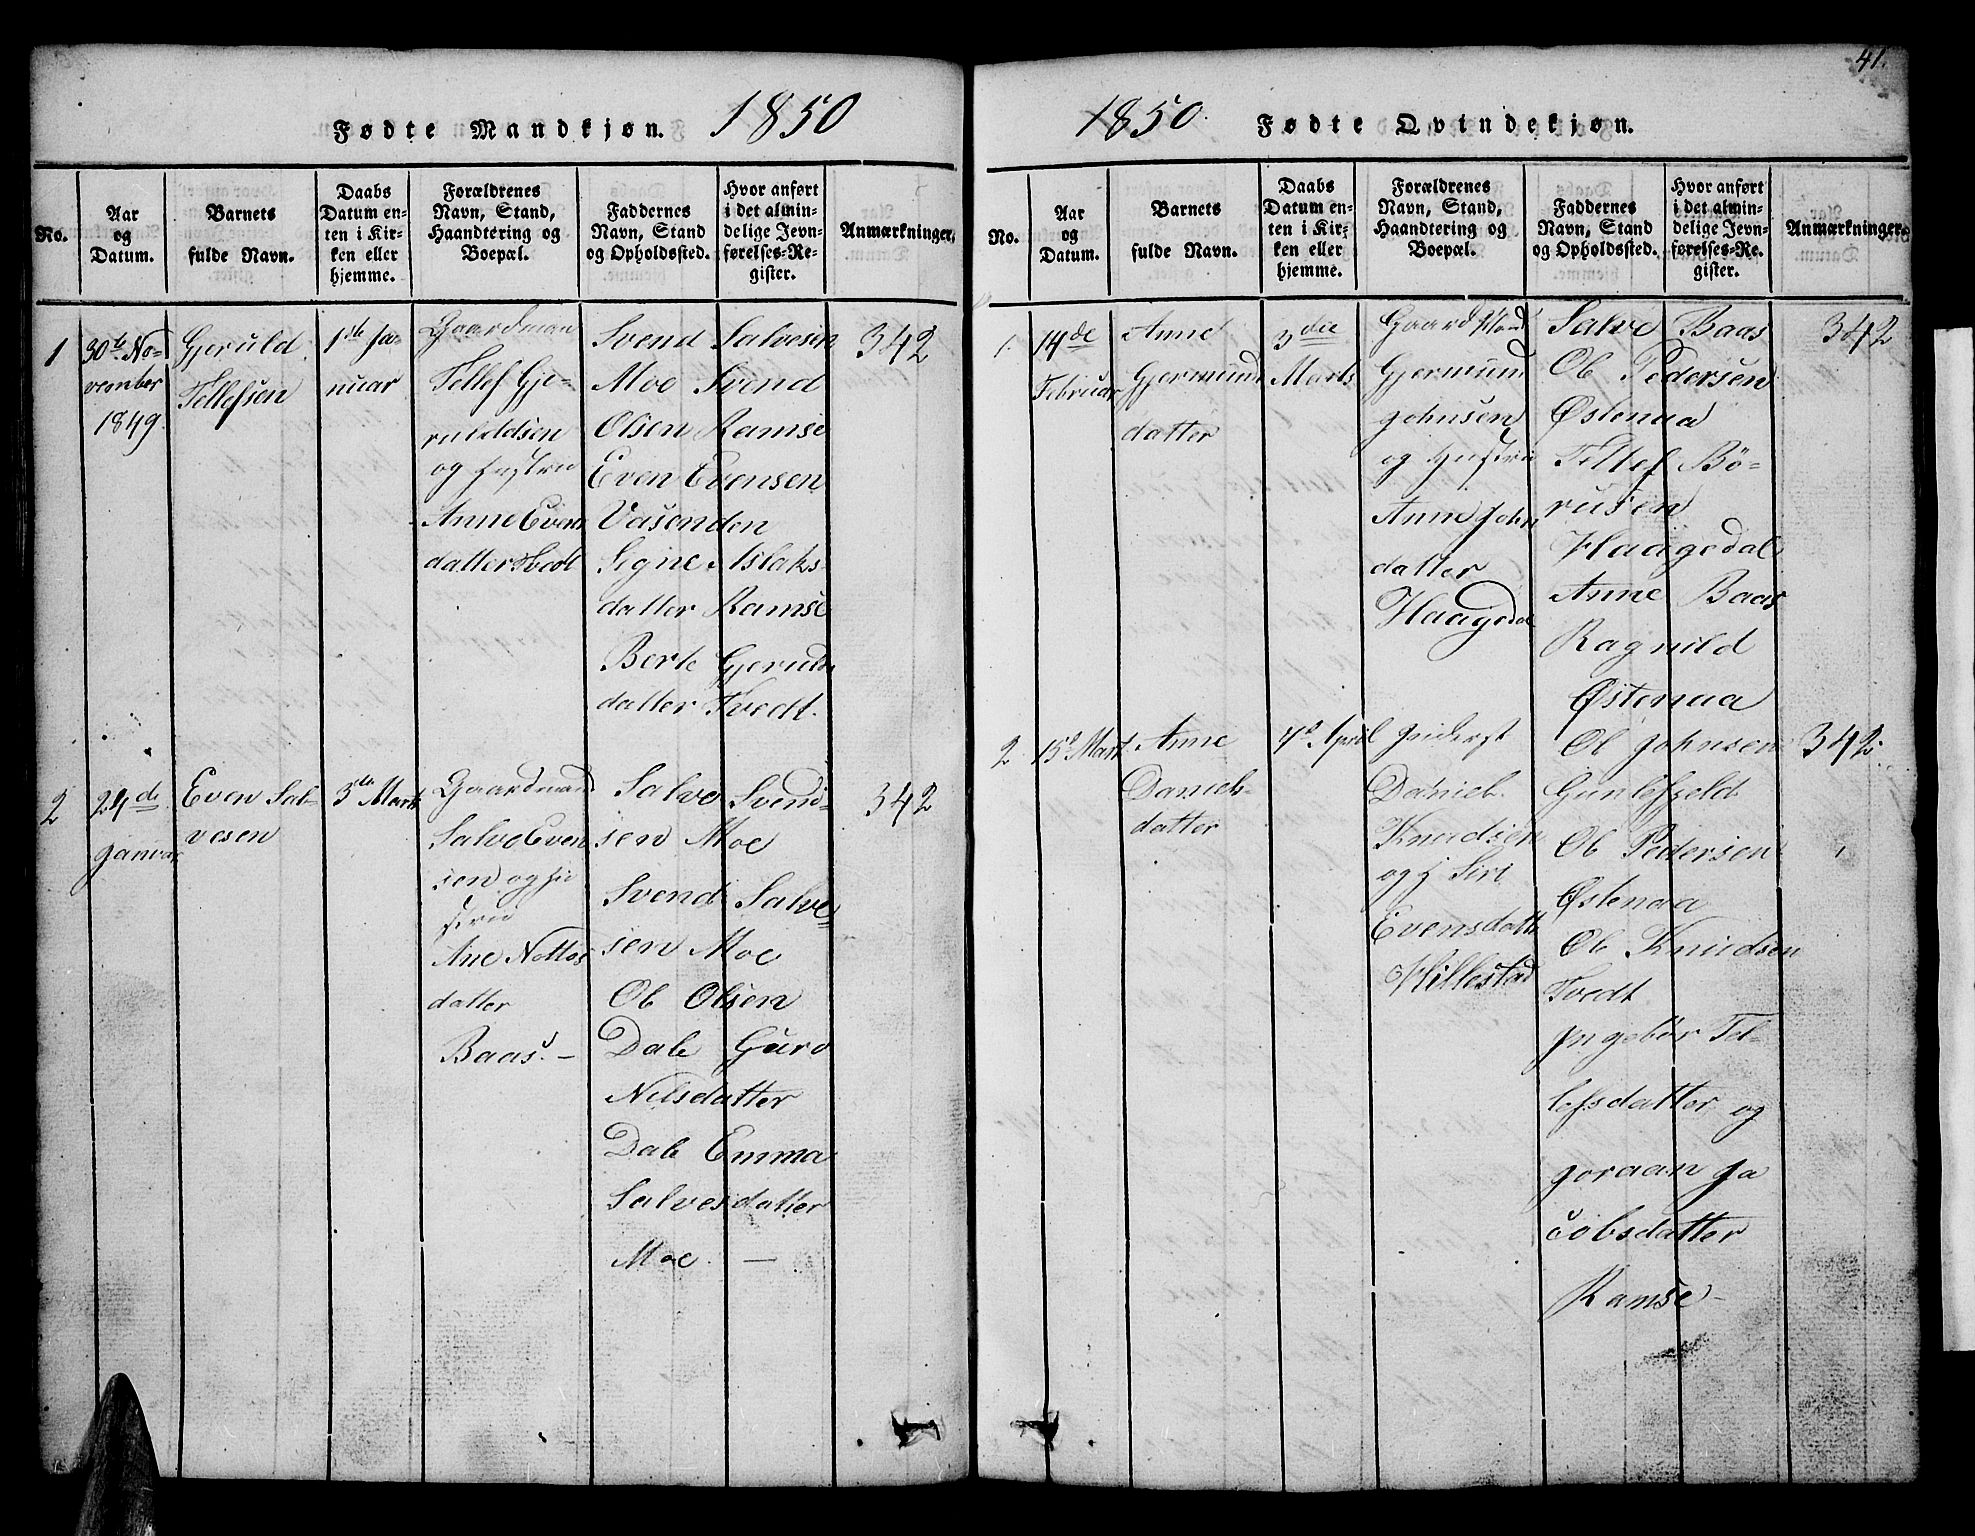 Fødte Mandkjøn. 1850
No.
Aar
og
Datum.
Barnets
fulde Navn.
Daabs
Datum en-
ten i Kir-
ken eller
hjemme.
Forældrenes
Navn, Stand,
Haandtering og
Boepæl.
Faddernes
Navn, Stand
og Opholdssted.
Hvor anført
i det almin-
delige Jevn-
førelses-Re-
gister.
Anmærkninger.
1
30te No-
vember
1849.
Gjeruld
Tellefsen
1ste Ja-
nuar
Gaardman
Tellef Gje-
ruldsen
og hustru
Anne Evens
datter
Svend Salvesen
Moe Svend
Olsen Ramse
Even Evensen
Vasenden
Signe Aslaks
datter Ramse
Berte Gjeruds
datter Tvedt.
342
2
24de
Januar
Even Sal-
vesen
3die Marts
Gaardmand
Salve Even
sen og hu
stru
Ane Nottos
datter
Baas. –
Salve Svend-
sen Moe
Svend Salve-
sen Moe
Ole Olsen
Dale Guro
Nilsdatter
Dale Emma
Salvesdatter
Moe. –
342
41.
1850. Fødte Qvindekjøn.
No.
Aar
og
Datum.
Barnets
fulde Navn.
Daabs
Datum en-
ten i Kir-
ken eller
hjemme.
Forældrenes
Navn, Stand,
Haandtering og
Boepæl.
Faddernes
Navn, Stand
og Opholdssted.
Hvor anført
i det almin-
delige Jevn-
førelses-Re-
gister.
Anmærkninger.
1.
14de
Februar
Anne
Gjermund
datter
3die
Marts
Gaard Mand
Gjermund
Johnsen
og Hustru
Anne John
datter
Haagedal
Salve Baas
Ole Pedersen
Østenaa
Tellef Bö-
rusen
Haagedal
Anne Baas
Ragnild
Østenaa
342
2
15de Mart
Anne
Daniels-
datter
7de April
Inderst
Daniel
Knudsen
og h Siri
Evensdatt
Hillestad
Ole Johnsen
Gunlefjeld
Ole Pedersen
Østenaa
Ole Knudsen
Tvedt
Ingebör Tel-
lefsdatter og
Joraan Ja
cobsdatter
Ramse –
342.